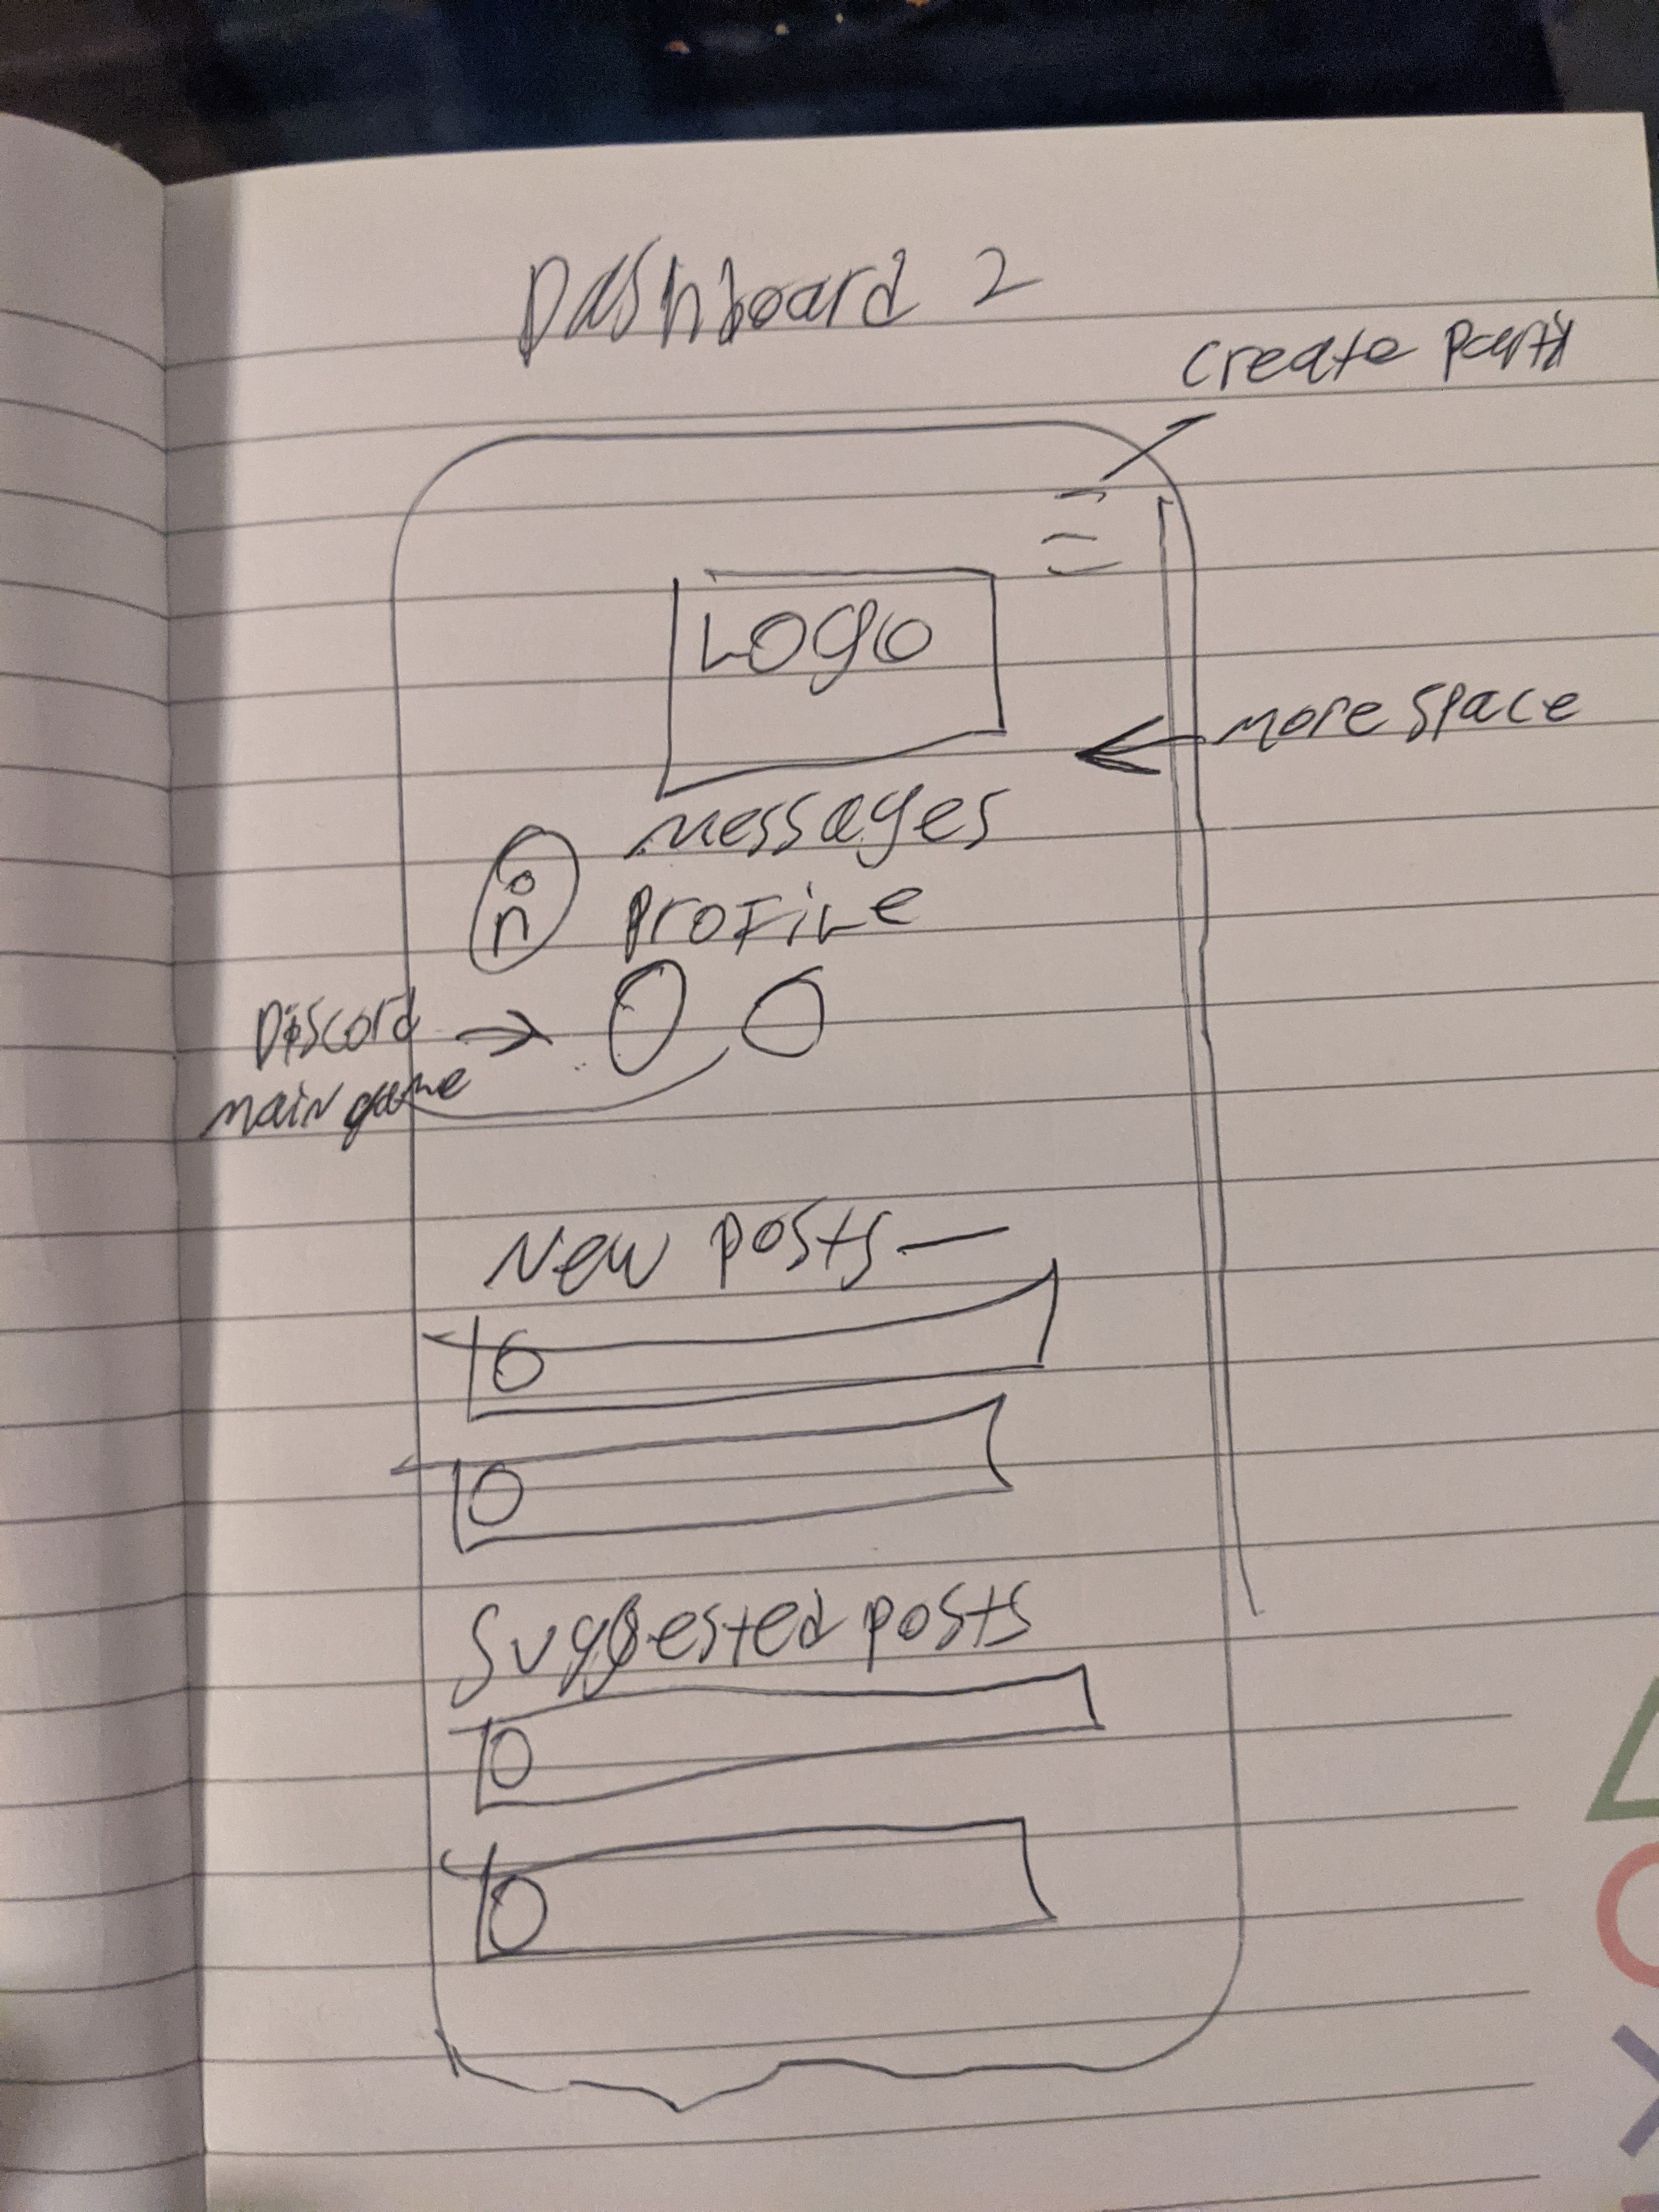 Dashboard 2
create party
LOGO
more space
messages
Profile
Discord
main game
New posts
Suggested posts